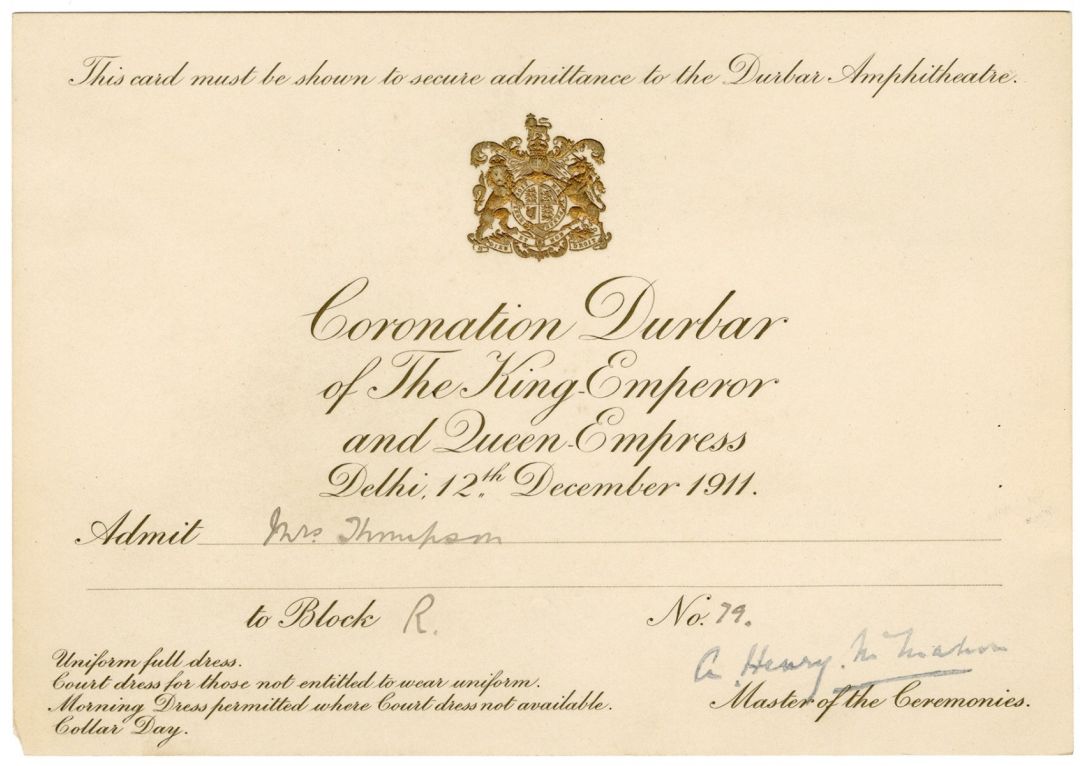 This card must be shown to secure admittance to the Durbar Amphitheatre.
DIEU ET MON DROIT
Coronation Durbar
of The King-Emperor
and Queen-Empress
Delhi, 12th December 1911.
Admit Mrs. Thompson
to Block R. No. 79.
Uniform full dress.
Court dress for those not entitled to wear uniform.
Morning Dress permitted where Court dress not available.
Collar Day.
A. Henry McMahon
Master of the Ceremonies.